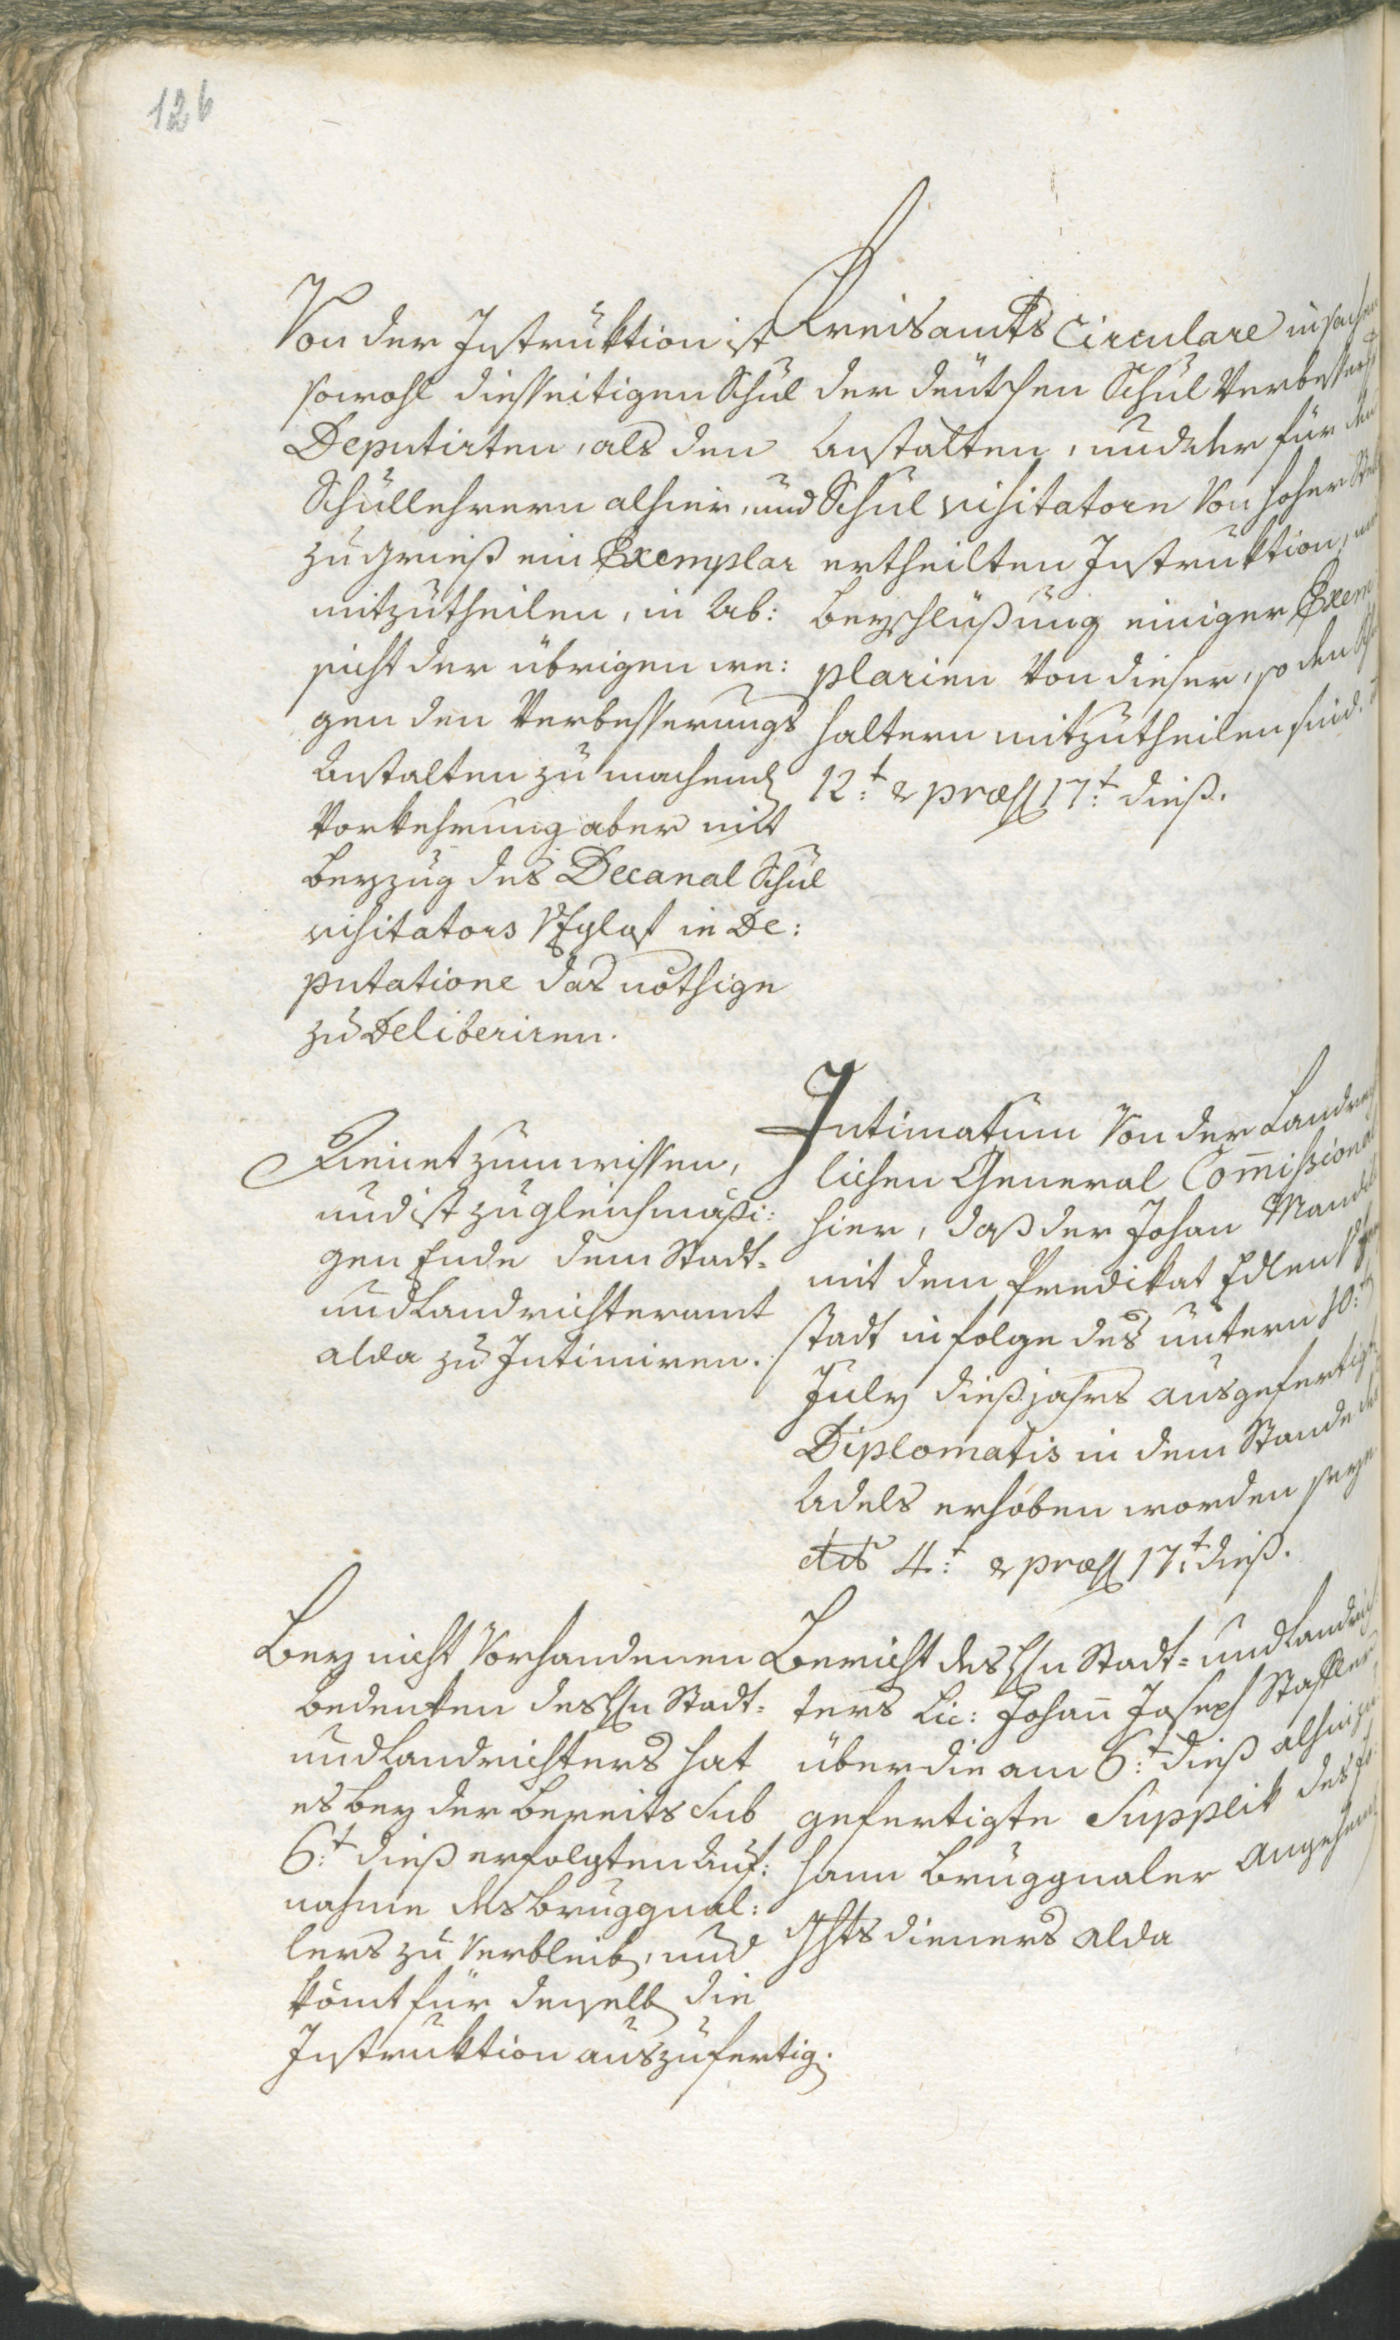 126
Von der Instruktion ist
sowohl diesseitigen Schul
Deputirten, als den
Schullehrern alhier, und
zu Gries ein Exemplar
mitzutheilen, in Ab:
sicht der übrigen we:
gen den Verbesserungs
Anstalten zu machend
Vorkehrung aber mit
Beyzug des Decanal Schul
visitators in De:
putatione das nöthige
zu Deliberiren.
Kreisamts Circulare in sachen
der deütschen Schul Verbesser
Anstalten, und der für den
Schul visitatorn Von hoher
ertheilten Instruktion,
Beyschlüßung einiger Exem
plarien Von dieser, so den
haltern mitzutheilen sind.
12:t & præs 17:t dieß.
Dienet zum wissen,
und ist zu gleichmäßi:
gen Ende dem Stadt-
und Landrichteramt
alda zu Intimiren.
Intimatum Von der Landre
lichen General Commissiona
hier, daß der Johan
mit dem Predikat Edlen
stadt in folge des untern 10:t
July dießjahrs ausgefertigt
Diplomatis in dem Stande des
Adels erhoben worden seye
dto 4:t & præs 17:t dieß.
Bey nicht Vorhandenen
Bedenken des Hn Stadt-
und Landrichters hat
es bey der bereits sub
6:t dieß erfolgten Auf:
nahme des Bruggnal:
lers zu Verbleib, und
kömt für denselb die
Instruktion auszufertig.
Bericht des Hn Stadt- und Landrich
ters Lic: Johann Joseph Stafler
über die am 6:t dieß alhin
gefertigte Supplik des Jo
hann Bruggnaler angehend
Ghtsdieners alda